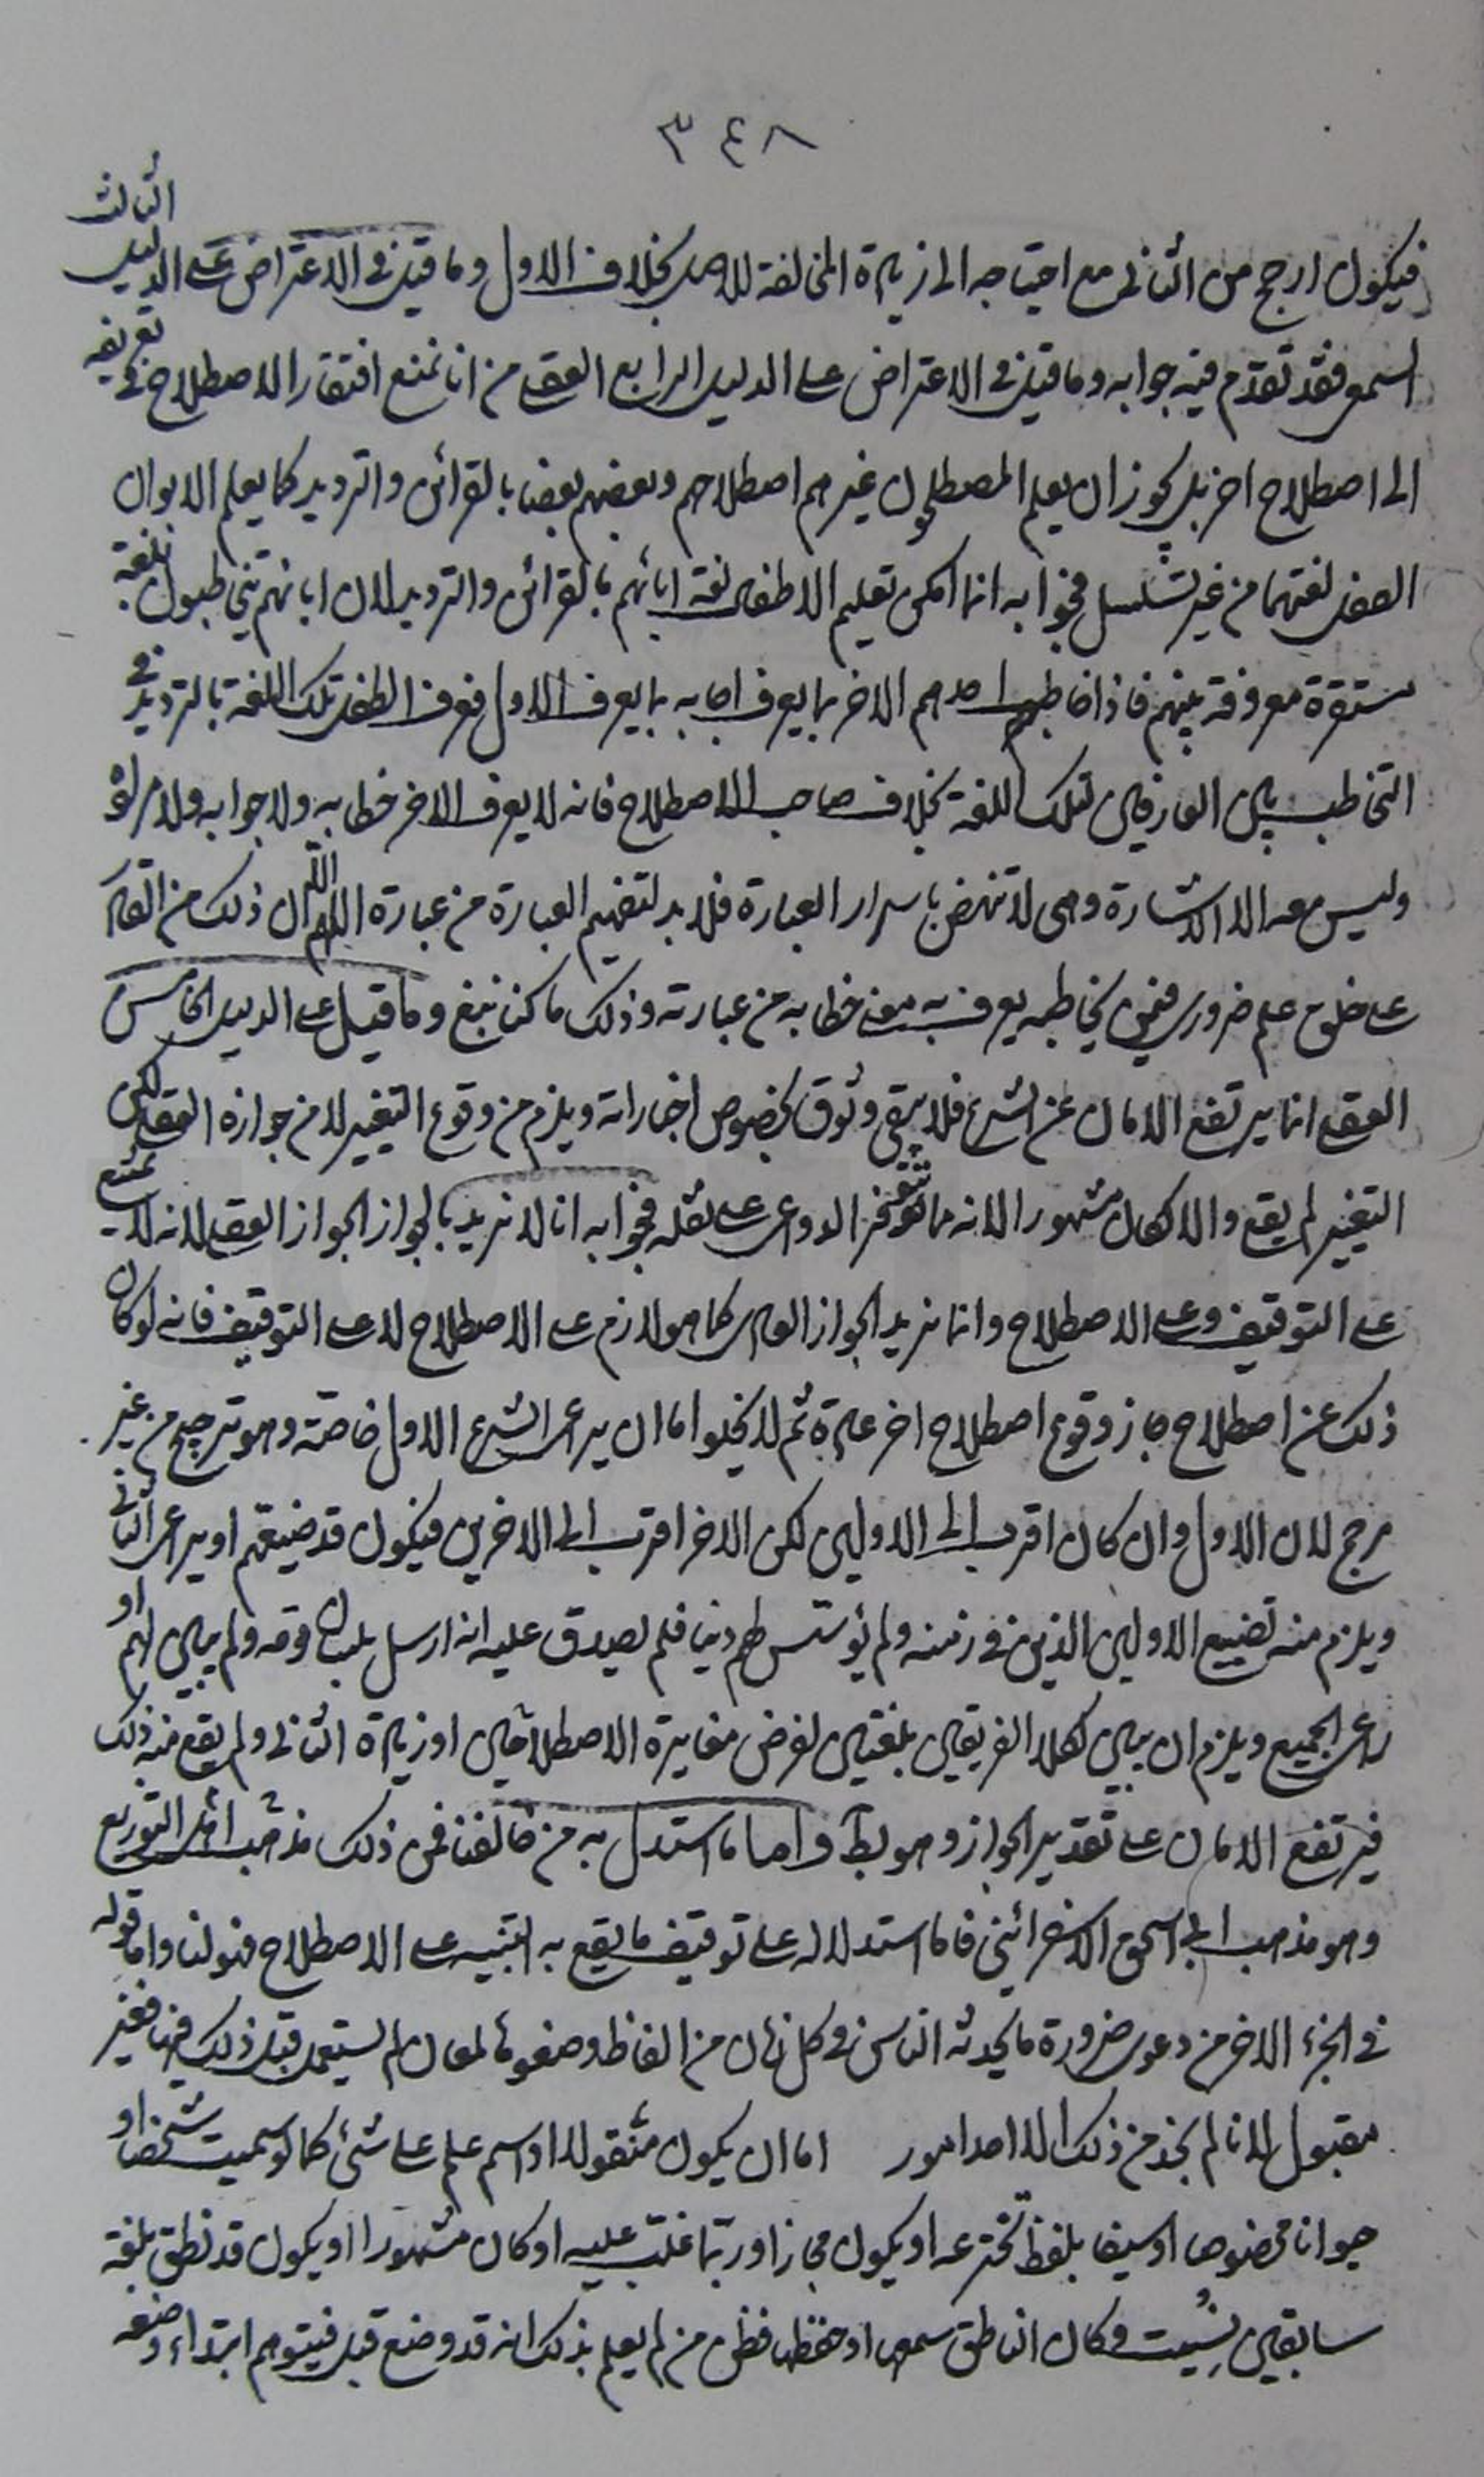 ٣٤٨
فيكون ارجح من الثانى مع احتياجه الى زيادة المخالفة للاصل بخلاف الاول وما قيل فى الاعتراض على الدليل الثالث
السمعى فقد تقدم فيه جوابه وما قيل فى الاعتراض على الدليل الرابع العقلى من انا نمنع افتقار الاصطلاح فى تعريفه
الى اصطلاح اخر بل يجوز ان يعلم المصطلحون غيرهم اصطلاحهم وبعضهم بعضا بالقرائن والترديد كما يعلم الابوان
الطفل لغتهما من غير تسلسل فجوابه انما امكن تعليم الاطفال لغة ابائهم بالقرائن والترديد لان ابائهم يتخاطبون بلغة
مستقرة معروفة بينهم فاذا خاطب احدهم الاخر بما يعرف اجابه بما يعرف الاول فعرف الطفل تلك اللغة بالترديد فى
التخاطب بين العارفين لتلك اللغة بخلاف صاحب الاصطلاح فانه لا يعرف الاخر خطابه ولا جوابه ولا مراده
وليس معه الا الاشارة وهى لا تنهض باسرار العبارة فلا بد لتفهيم العبارة من عبارة اللهم الا ان ذلك من القادر
على خلق علم ضرورى فيمن يخاطبه يعرف به معنى خطابه من عبارته وذلك ما كنا نبغ وما قيل على الدليل الخامس
العقلى انما يرتفع الامان عن الشرع فلا يبقى وثوق بخصوص اخباراته ويلزم من وقوع التغيير لا من جوازه العقلى لكن
التغيير لم يقع والا لكان مشهورا لانه مما تتوفر الدواعى على نقله فجوابه انا لا نريد بالجواز الجواز العقلى لانه لا يمتنع
على التوقيف وعلى الاصطلاح وانما نريد الجواز العادى كما هو لازم على الاصطلاح لا على التوقيف فانه لو كان
ذلك عن اصطلاح جاز وقوع اصطلاح اخر عادة ثم لا يخلوا اما ان يراعى الشرع الاول خاصة وهو ترجيح من غير
مرجح لان الاول وان كان اقرب الى الاولين لكن الاخر اقرب الى الاخرين فيكون قد ضيعهم او يراعى الثانى
ويلزم منه تضييع الاولين الذين فى زمنه ولم يؤسس لهم دينا فلم يصدق عليه انه ارسل بلسان قومه ولم يبين لهم او
راعى الجميع ويلزم ان يبين لكلا الفريقين بلغتين لفرض مغايرة الاصطلاحين او زيادة الثانى ولم يقع منه ذلك
فيرتفع الامان على تقدير الجواز وهو بط واما ما استدل به من خالفنا فمن ذلك مذهب اهل التوزيع
وهو مذهب ابى اسحق الاسفرائينى فاما استدلاله على توقيف ما يقع به التنبيه على الاصطلاح فهو لنا واما قوله
فى الجزء الاخر من دعوى ضرورة ما يحدثه الناس فى كل زمان من الفاظ وضعوها لمعان لم يستعمل قبل ذلك فيها فغير
مقبول لانا لم نجد من ذلك الا احد امور اما ان يكون منقولا او اسم علم على شئ كما لو سميت شخصا او
حيوانا مخصوصا او سيفا بلفظ تخترعه او يكون مجازا وربما غلب عليه او كان مشهورا او يكون قد نطق بلغة
سابقين نسيت وكان الناطق سمعها او حفظها فظن من لم يعلم بذلك انه قد وضع قبل فيتوهم ابتداء وضعه